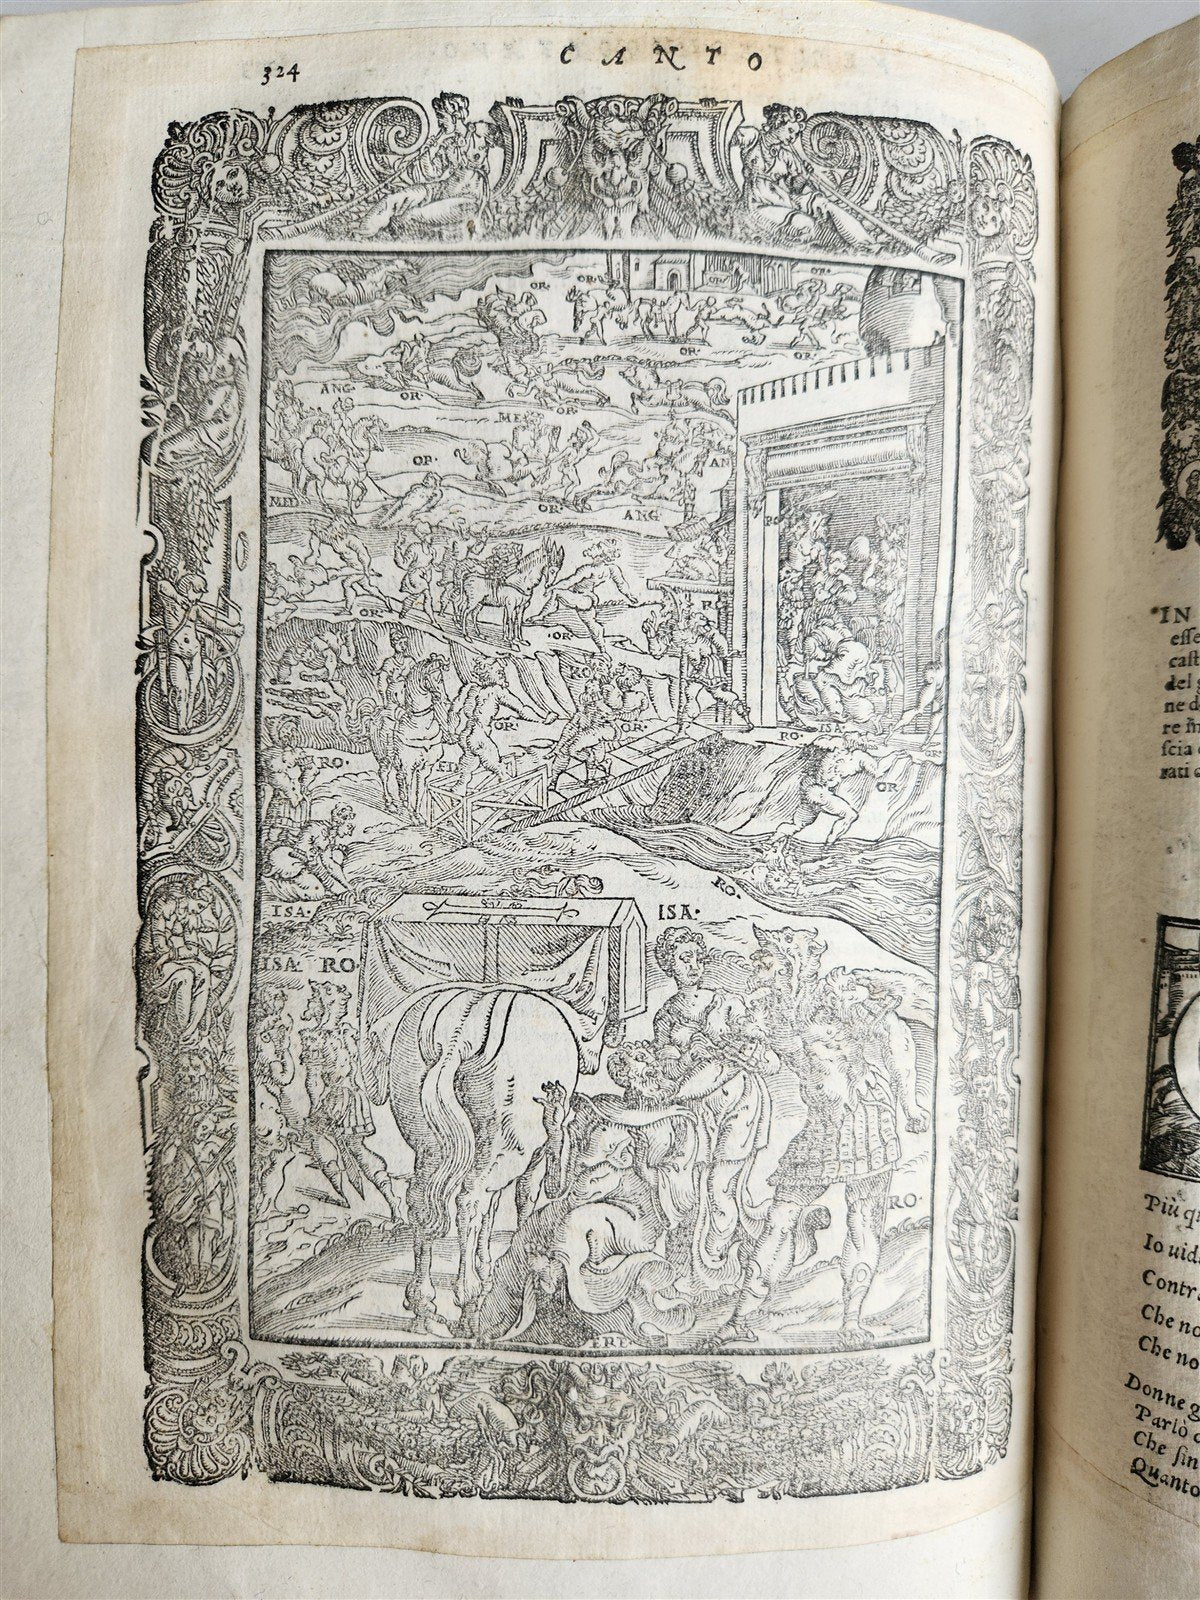 324
CANTO
OR·
OR·
OR·
OR·
OR·
OR·
ANG·
OR·
OR·
ME
OR·
AN
MED
OR·
ANG
RO
OR·
·OR·
RO
RO
OR·
OR·
RO·
ISA·
OR·
RO·
FI
OR
RO·
ISA·
ISA·
ISA RO·
RO·
FERE
IN
esse
cast
del g
ne de
re
scia
rati
Più qu
Io uid
Contr
Che no
Che no
Donne g
Parlò
Che sin
Quanto